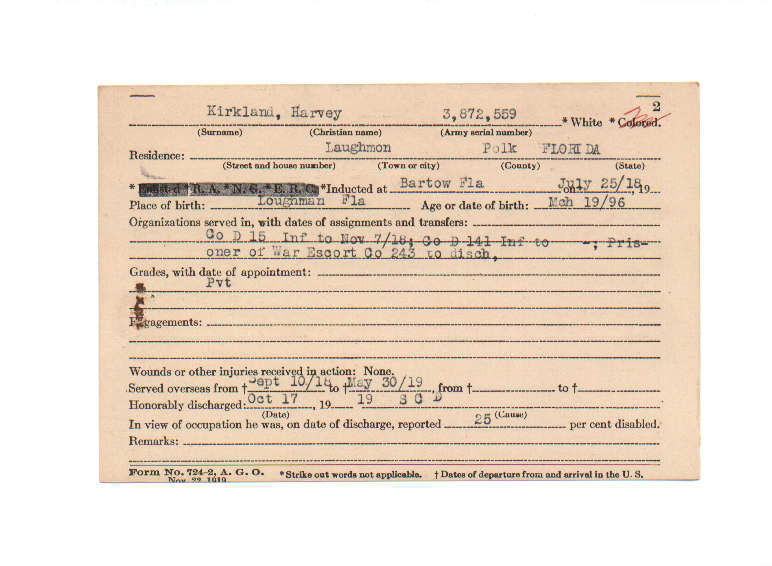 2
Kirkland, Harvey 3,872,559 * White * Colored.
(Surname) (Christian name) (Army serial number)
Residence: Laughmon Polk FLORIDA
(Street and house number) (Town or city) (County) (State)
* Enlisted * R. A. * N. G. * E. R. C. * Inducted at Bartow Fla on July 25/18, 19
Place of birth: Loughman Fla Age or date of birth: Mch 19/96
Organizations served in, with dates of assignments and transfers:
Co D 15 Inf to Nov 7/18; Co D 141 Inf to -; Pris-
oner of War Escort Co 243 to disch.
Grades, with date of appointment:
Pvt
Engagements:
Wounds or other injuries received in action: None.
Served overseas from † Sept 10/18 to † May 30/19, from † to †
Honorably discharged: Oct 17, 19 19 S C D
(Date) (Cause)
In view of occupation he was, on date of discharge, reported 25 per cent disabled.
Remarks:
Form No. 724-2, A. G. O. * Strike out words not applicable. † Dates of departure from and arrival in the U. S.
Nov. 22, 1919